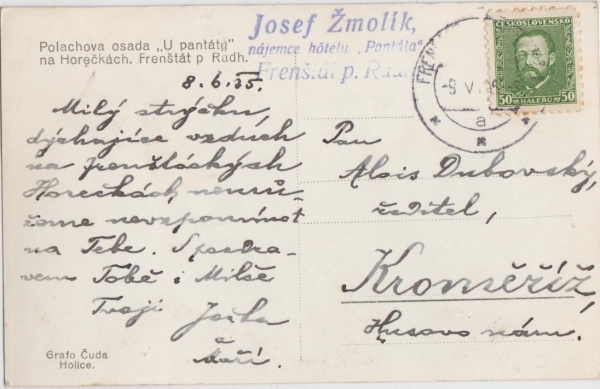 Polachova osada „U pantáty"
na Horečkách. Frenštát p Radh.
Josef Žmolík,
nájemce hôtelu „Pantáta"
Frenštát p. Radh.
ČESKOSLOVENSKO
50 HALÉŘŮ 50
FREN
a
8.6.35.
Milý strýčku,
dýchajíce vzduch
na frenštáckých
Horečkách nemů-
žeme nevzpomínat
na Tebe. S pozdra-
vem Tobě i Milše
Tvoji Joška
a
Maří.
Pan
Alois Dubovský,
ředitel,
Kroměříž,
Husovo nám.
Grafo Čuda
Holice.